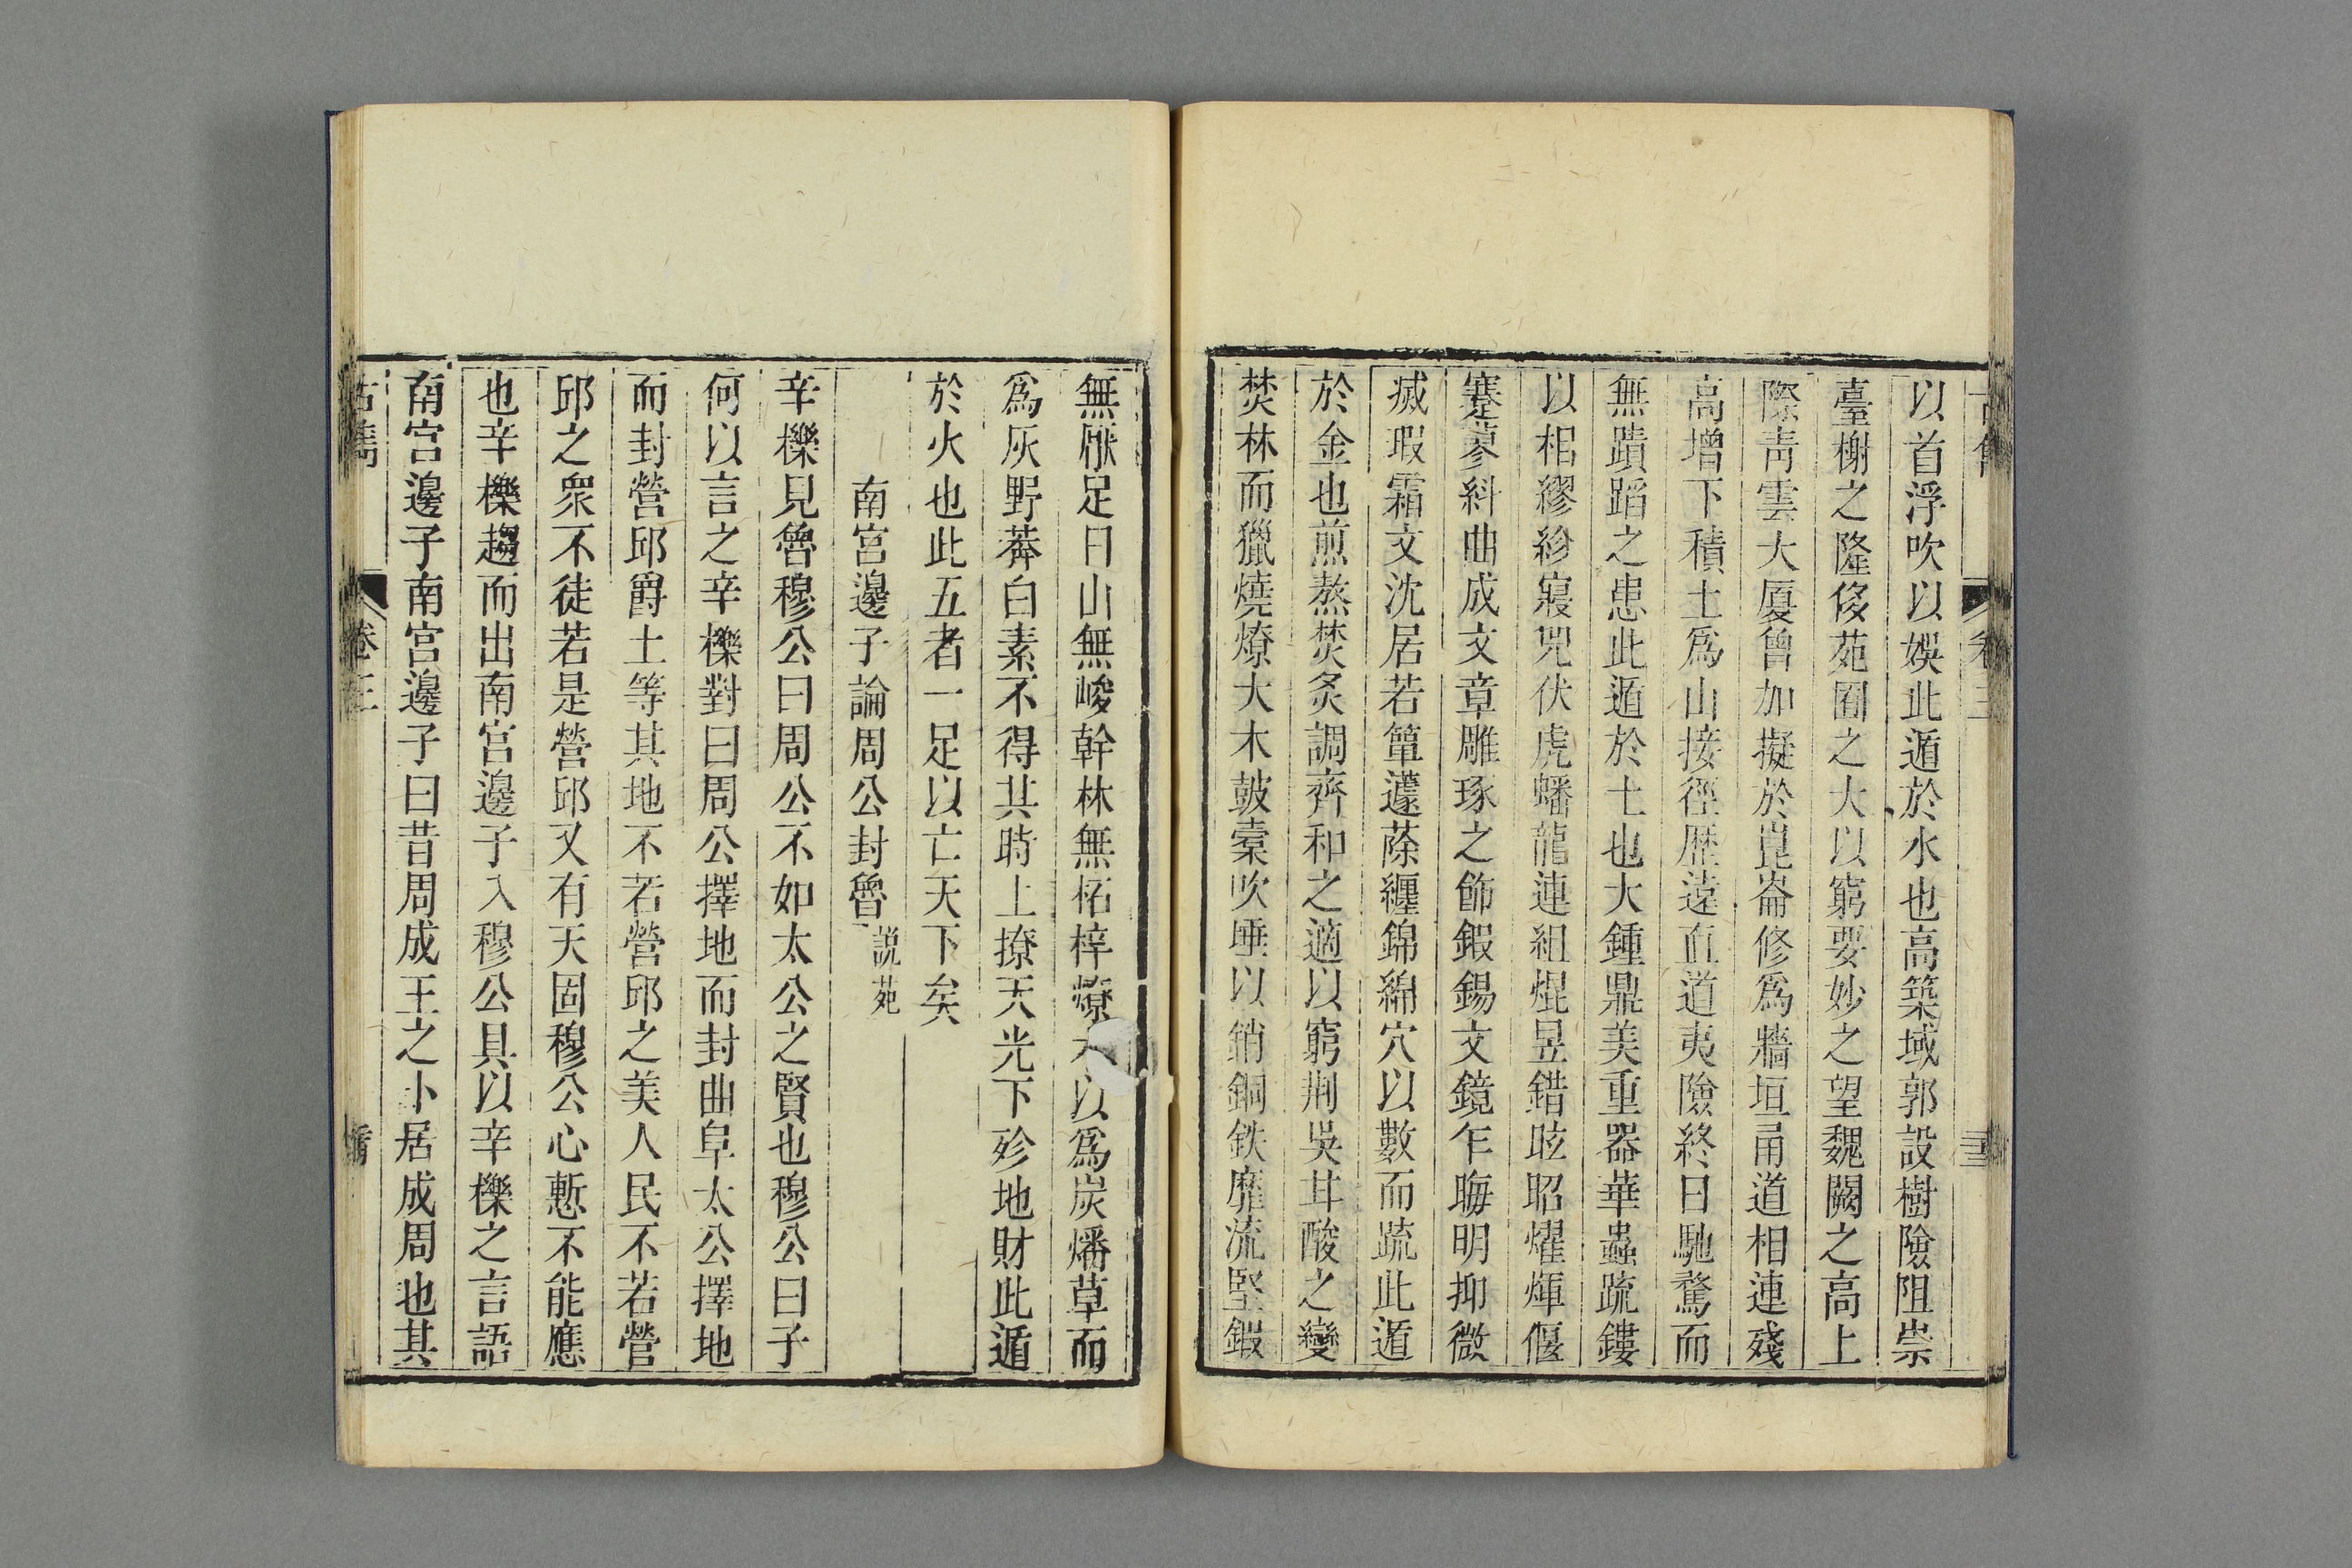 以首浮吹以娛此遁於水也高築城郭設樹險阻崇
臺榭之隆侈苑囿之大以窮要妙之望魏闕之高上
際青雲大厦曾加擬於崑崙修爲牆垣甬道相連殘
高增下積土爲山接徑歷遠直道夷險終日馳騖而
無蹟蹈之患此遁於土也大鍾鼎美重器華蟲疏鏤
以相繆紾寢兕伏虎蟠龍連組焜昱錯眩昭燿煇偃
蹇蓼糾曲成文章雕琢之飾鍜錫文鏡乍晦明抑微
滅瑕霜文沈居若簟籧蒢纏錦綿穴以數而疏此遁
於金也煎熬焚炙調齊和之適以窮荆吳甘酸之變
焚林而獵燒燎大木鼓橐吹埵以銷銅鉄靡流堅鍜
無厭足日山無峻幹林無柘梓燎 以爲炭燔草而
爲灰野莽白素不得其時上撩天光下殄地財此遁
於火也此五者一足以亡天下矣
南宮邊子論周公封魯 說苑
辛櫟見魯穆公曰周公不如太公之賢也穆公曰子
何以言之辛櫟對曰周公擇地而封曲阜太公擇地
而封營邱爵土等其地不若營邱之美人民不若營
邱之眾不徒若是營邱又有天固穆公心慙不能應
也辛櫟趨而出南宮邊子入穆公具以辛櫟之言語
南宮邊子南宮邊子曰昔周成王之卜居成周也其
卷三